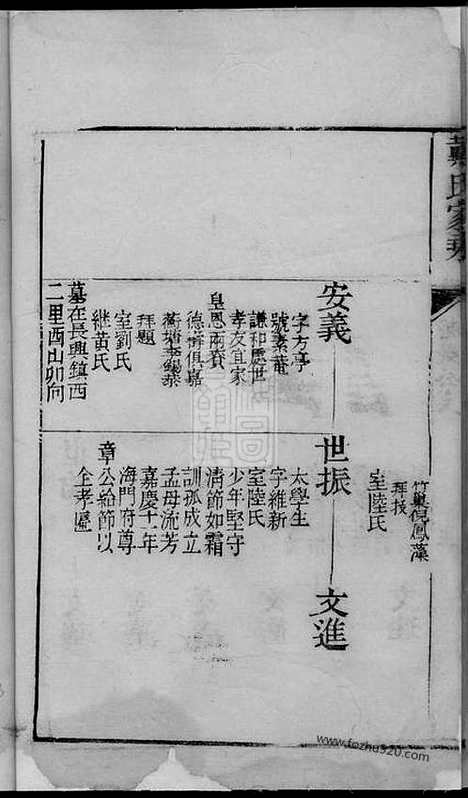 氏家
竹巢倪鳳藻
拜技
室陸氏
安義
字方亭
號素菴
謙和處世
孝友宜家
皇恩兩賚
德壽俱嘉
拜題
室劉氏
繼黃氏
墓在長興鎮西
二里酉山卯向
世振
太學生
字維新
室陸氏
少年堅守
清節如霜
訓孤成立
孟母流芳
嘉慶十一年
海門府尊
章公給節以
全孝匾
文進
www.fozhu920.com